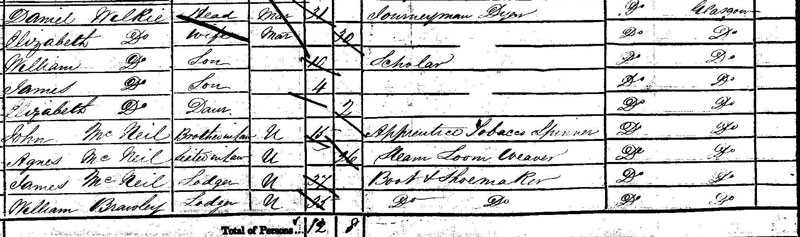 Daniel Wilkie Head Mar Journeyman Dyer Do Glasgow
Elizabeth Do Wife Mar Do Do
William Do Son Scholar Do Do
James Do Son 4 Do Do
Elizabeth Do Daur 2 Do Do
John Mc Neil Brother in law U Apprentice Tobacco Spinner Do Do
Agnes Mc Neil Sister in law U 26 Steam Loom Weaver Do Do
James Mc Neil Lodger U 27 Boot & Shoemaker Do Do
William Brawley Lodger U Do Do Do Do
Total of Persons 12 8